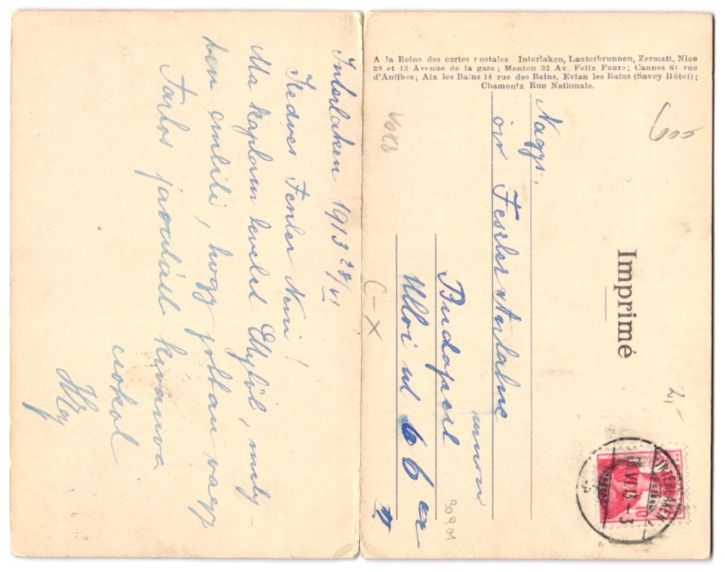 Interlaken 1913 28/VI
Kedves Feszler Néni!
Ma kaptam levelet Ellytől, mely-
ben említi, hogy jobban vagy
Tartós javulást kívánva
csókol
A la Reine des cartes postales. Interlaken, Lauterbrunnen, Zermatt, Nice
39 et 13 Avenue de la gare; Menton 32 Av. Felix Faure; Cannes 61 rue
d'Antibes; Aix les Bains 14 rue des Bains, Evian les Bains (Savoy Hôtel);
Chamonix Rue Nationale.
Nagys.
özv Feszler Antalné
úrnőn
Budapest
Üllői út 66
Imprimé
600
2,-
C-X